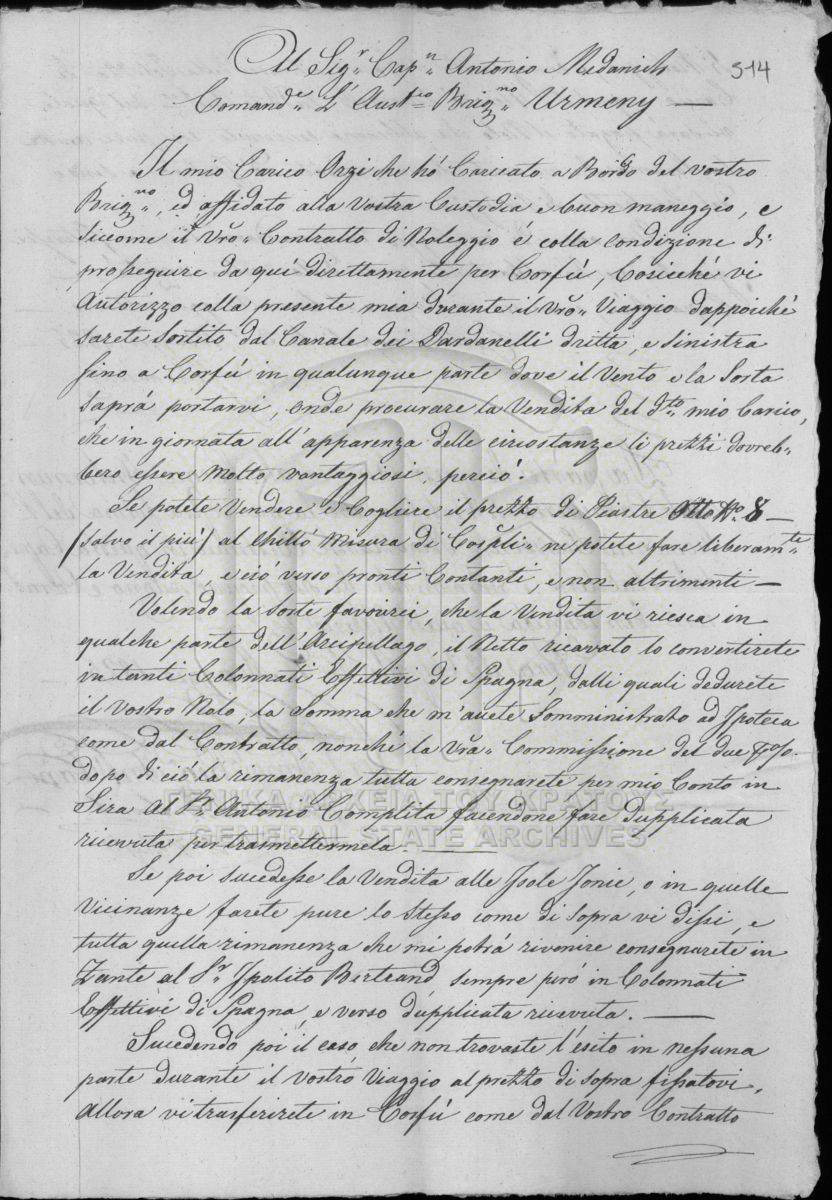 514
Al Sigr. Capn. Antonio Medanich
Comande. L' Austco. Brigno. Urmeny —
Il mio Carico Orzi che hó Caricato a Bordo del vostro
Brigno., ed affidato alla Vostra Custodia e buon maneggio, e
siccome il Vro. Contratto di Noleggio é colla condizione di
proseguire da quí direttamente per Corfú, Cosicché vi
Autorizzo colla presente mia durante il Vro. Viaggio dappoiché
sarete sortito dal Canale dei Dardanelli dritta, e sinistra
fino a Corfú in qualunque parte dove il Vento e la Sorta
saprá portarvi, onde procurare la Vendita del dto. mio Carico,
che in giornata all'apparenza delle circostanze li prezzi dovreb-
bero essere molto vantaggiosi perció.
Se potete Vendere e Cogliere il prezzo di Piastre Otto No. 8 —
(salvo il piú) al Chilló Misura di Cospli. ne potete fare liberamte.
la Vendita, e ció verso pronti Contanti, e non altrimenti —
Volendo la sorte favorirci, che la Vendita vi riesca in
qualche parte dell'Arcipellago, il Netto ricavato lo convertirete
in tanti Colonnati Effettivi di Spagna, dalli quali dedurete
il Vostro Nolo, la Somma che m'avete Somministrato ad Ipoteca
come dal Contratto, nonché la Vra. Commissione del due p%.
dopo di ció la rimanenza tutta consegnarete per mio Conto in
Sira Al Sr. Antonio Complita facendone fare dupplicata
ricevuta per trasmettermela —
ΓΕΝΙΚΑ ΑΡΧΕΙΑ ΤΟΥ ΚΡΑΤΟΥΣ
GENERAL STATE ARCHIVES
Se poi sucedesse la Vendita alle Isole Jonie, o in quelle
Vicinanze farete pure lo stesso come di sopra vi dissi, e
tutta quella rimanenza che mi potrá rivenire consegnarete in
Zante al Sr. Ipolito Bertrand sempre peró in Colonnati
Effettivi di Spagna, e verso dupplicata ricevuta. —
Sucedendo poi il caso che non trovaste l'esito in nessuna
parte durante il vostro Viaggio al prezzo di sopra fissatovi,
allora vi trasferirete in Corfú come dal Vostro Contratto